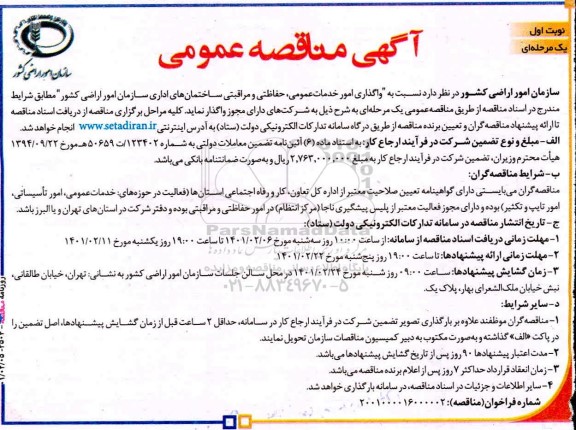 نوبت اول
یک مرحله‌ای
آگهی مناقصه عمومی
سازمان امور اراضی کشور
سازمان امور اراضی کشور در نظر دارد نسبت به "واگذاری امور خدمات عمومی، حفاظتی و مراقبتی ساختمان‌های اداری سازمان امور اراضی کشور" مطابق شرایط
مندرج در اسناد مناقصه از طریق مناقصه عمومی یک مرحله‌ای به شرح ذیل به شرکت‌های دارای مجوز واگذار نماید. کلیه مراحل برگزاری مناقصه از دریافت اسناد مناقصه
تا ارائه پیشنهاد مناقصه گران و تعیین برنده مناقصه از طریق درگاه سامانه تدارکات الکترونیکی دولت (ستاد) به آدرس اینترنتی www.setadiran.ir انجام خواهد شد.
الف- مبلغ و نوع تضمین شرکت در فرآیند ارجاع کار: به استناد ماده (۶) آئین‌نامه تضمین معاملات دولتی به شماره ۱۲۳۴۰۲/ت ۵۰۶۵۹ هـ مورخ ۱۳۹۴/۰۹/۲۲
هیأت محترم وزیران، تضمین شرکت در فرآیند ارجاع کار به مبلغ ۲,۷۶۳,۰۰۰,۰۰۰ ریال و به‌صورت ضمانتنامه بانکی می‌باشد.
ب- شرایط مناقصه گران:
مناقصه گران می‌بایستی دارای گواهینامه تعیین صلاحیت معتبر از اداره کل تعاون، کار و رفاه اجتماعی استان‌ها (فعالیت در حوزه‌های: خدمات عمومی، امور تأسیساتی،
امور تایپ و تکثیر) بوده و دارای مجوز فعالیت معتبر از پلیس پیشگیری ناجا (مرکز انتظام) در امور حفاظتی و مراقبتی بوده و دفتر شرکت در استان‌های تهران و یا البرز باشد.
ج- تاریخ انتشار مناقصه در سامانه تدارکات الکترونیکی دولت (ستاد):
۱- مهلت زمانی دریافت اسناد مناقصه از سامانه: از ساعت ۱۰:۰۰ روز سه شنبه مورخ ۱۴۰۱/۰۲/۰۶ تا ساعت ۱۹:۰۰ روز یکشنبه مورخ ۱۴۰۱/۰۲/۱۱
۲- مهلت زمانی ارائه پیشنهادها: تا ساعت ۱۹:۰۰ روز پنج‌شنبه مورخ ۱۴۰۱/۰۲/۲۲
۳- زمان گشایش پیشنهادها: ساعت ۰۹:۰۰ روز شنبه مورخ ۱۴۰۱/۰۲/۲۴ در محل سالن جلسات سازمان امور اراضی کشور به نشانی: تهران، خیابان طالقانی،
نبش خیابان ملک‌الشعرای بهار، پلاک یک.
د- سایر شرایط:
۱- مناقصه گران موظفند علاوه بر بارگذاری تصویر تضمین شرکت در فرآیند ارجاع کار در سامانه، حداقل ۲ ساعت قبل از زمان گشایش پیشنهادها، اصل تضمین را
در پاکت «الف» گذاشته و به‌صورت مکتوب به دبیر کمیسیون مناقصات سازمان تحویل نمایند.
۲- مدت اعتبار پیشنهادها ۹۰ روز پس از تاریخ گشایش پیشنهادها می‌باشد.
۳- زمان انعقاد قرارداد حداکثر ۷ روز پس از اعلام برنده مناقصه می‌باشد.
۴- سایر اطلاعات و جزئیات در اسناد مناقصه، در سامانه بارگذاری خواهد شد.
شماره فراخوان (مناقصه): ۲۰۰۱۰۰۰۰۱۶۰۰۰۰۰۲
ParsNamadData
۰۲۱-۸۸۳۴۹۶۷۰-۵